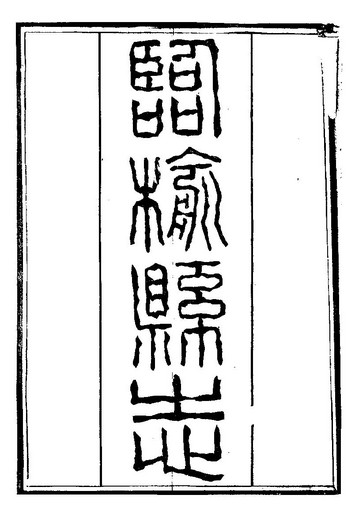 臨榆縣志